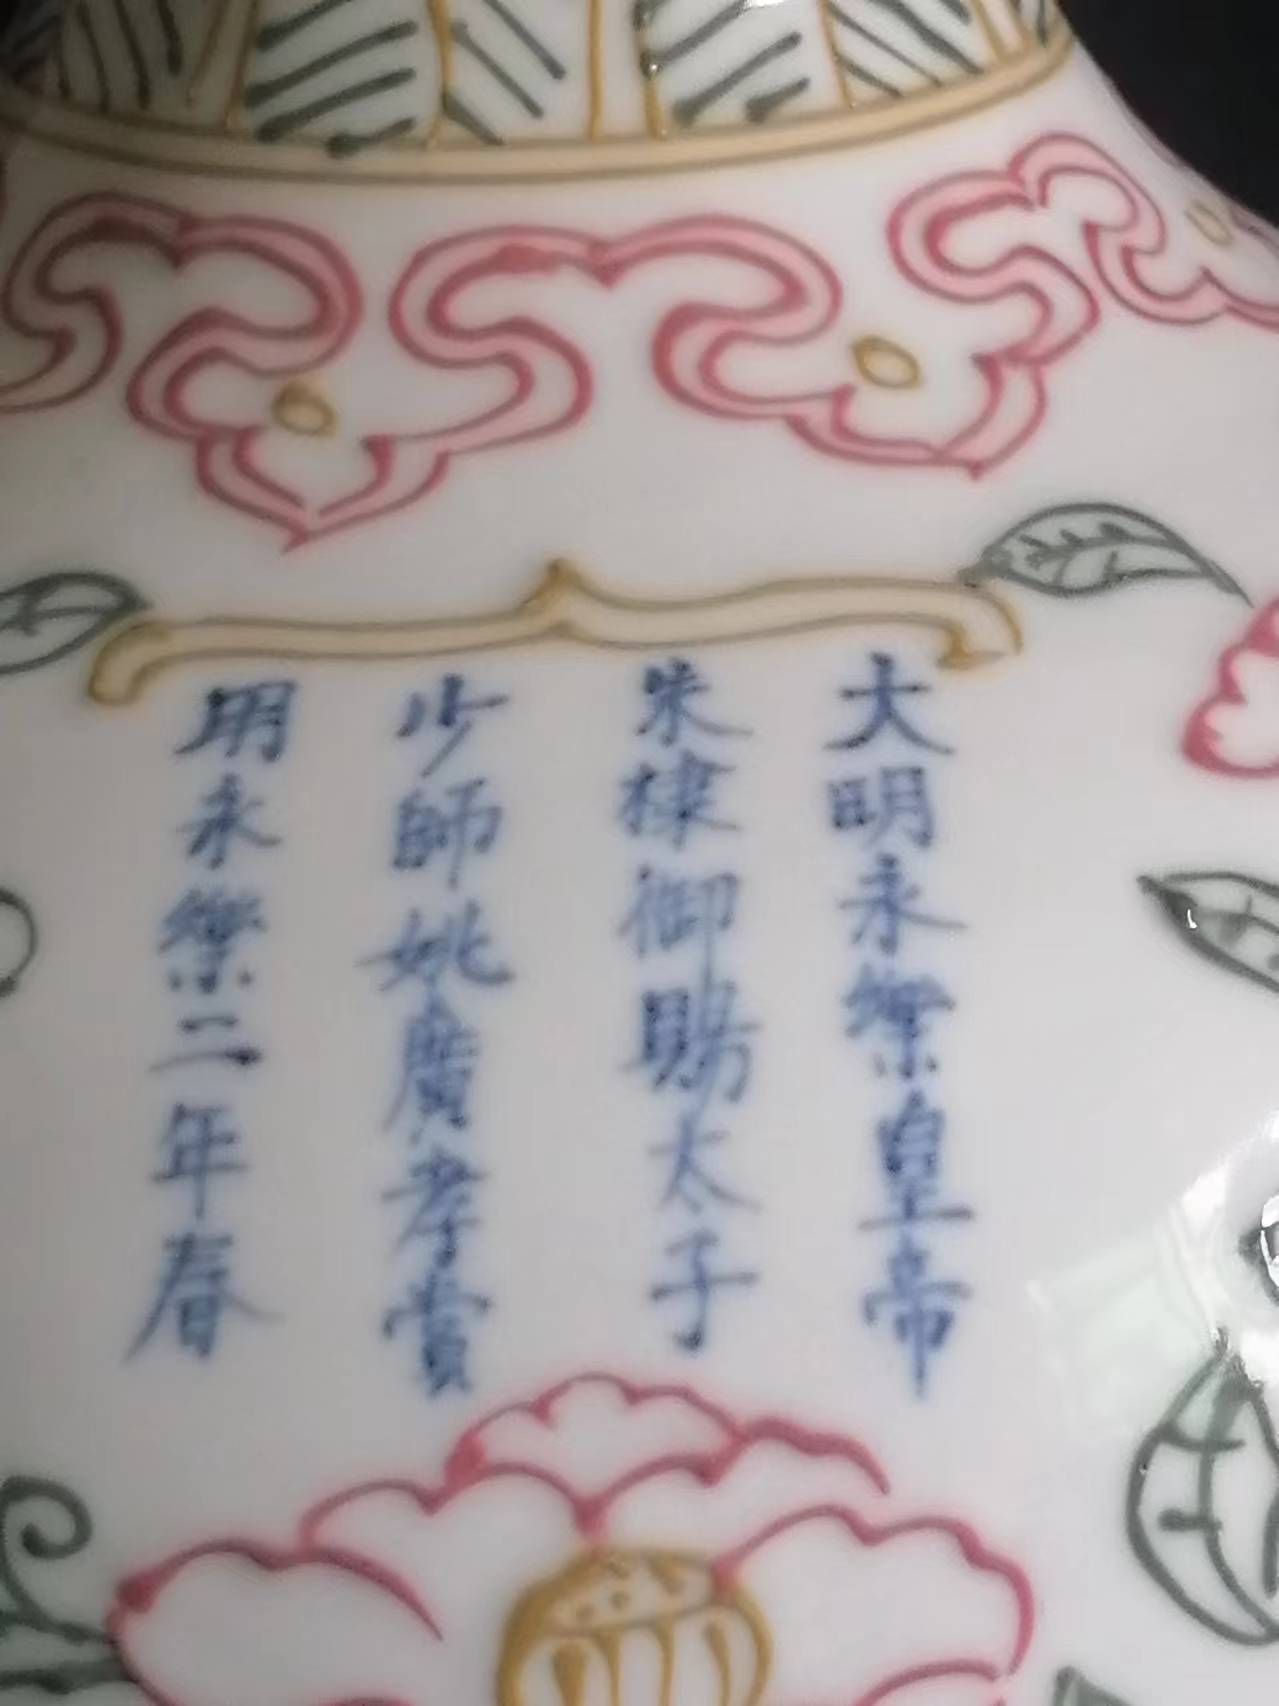 大明永樂皇帝
朱棣御賜太子
少師姚廣孝賞
明永樂二年春